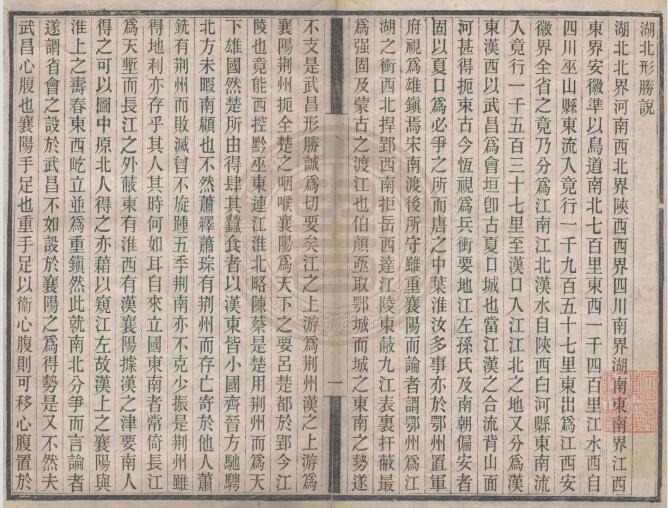 湖北形勝說
湖北北界河南西北界陝西西界四川南界湖南東南界江西
東界安徽準以鳥道南北七百里東西一千四百里江水西自
四川巫山縣東流入竟行一千九百五十七里東出爲江西安
徽界全省之竟乃分爲江南江北漢水自陝西白河縣東南流
入竟行一千五百三十七里至漢口入江江北之地又分爲漢
東漢西以武昌爲會垣卽古夏口城也當江漢之合流背山面
河甚得扼束古今恆視爲兵衝要地江左孫氏及南朝偏安者
固以夏口爲必爭之所而唐之中葉淮汝多事亦於鄂州置軍
府視爲雄鎭焉宋南渡後所守雖重襄陽而論者謂鄂州爲江
湖之衝西北捍郢西南拒岳西達江陵東蔽九江表裏扞蔽最
爲强固及蒙古之渡江也伯顏亟取鄂城而城之東南之勢遂
不支是武昌形勝誠爲切要矣江之上游爲荆州漢之上游爲
襄陽荆州扼全楚之咽喉襄陽爲天下之要呂楚都於郢今江
陵也竟能西控黔巫東連江淮北略陳蔡是楚用荆州而爲天
下雄國然楚所由得肆其蠶食者以漢東皆小國齊晉方馳騁
北方未暇南顧也不然蕭繹蕭琮有荆州而存亡寄於他人蕭
銑有荆州而敗滅曾不旋踵五季荆南亦不克少振是荆州雖
得地利亦存乎其人其時何如耳自來立國東南者常倚長江
爲天塹而長江之外蔽東有淮西有漢襄陽據漢之津要南人
得之可以圖中原北人得之亦藉以窺江左故漢上之襄陽與
淮上之壽春東西屹立並爲重鎭然此就南北分爭而言論者
遂謂省會之設於武昌不如設於襄陽之爲得勢是又不然夫
武昌心腹也襄陽手足也重手足以衞心腹則可移心腹置於
一